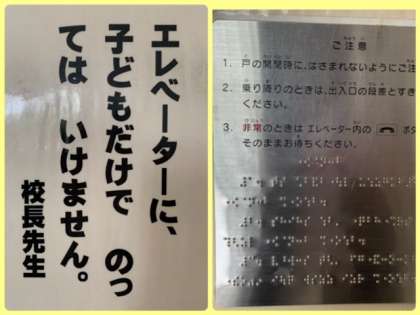 エレベーターに、
子どもだけで のっ
ては いけません。
校長先生
ご注意
1. 戸の開閉時に、はさまれないようにご注
2. 乗り降りのときは、出入口の段差とすき
ください。
3. 非常のときは エレベーター内の ボタ
そのままお待ちください。